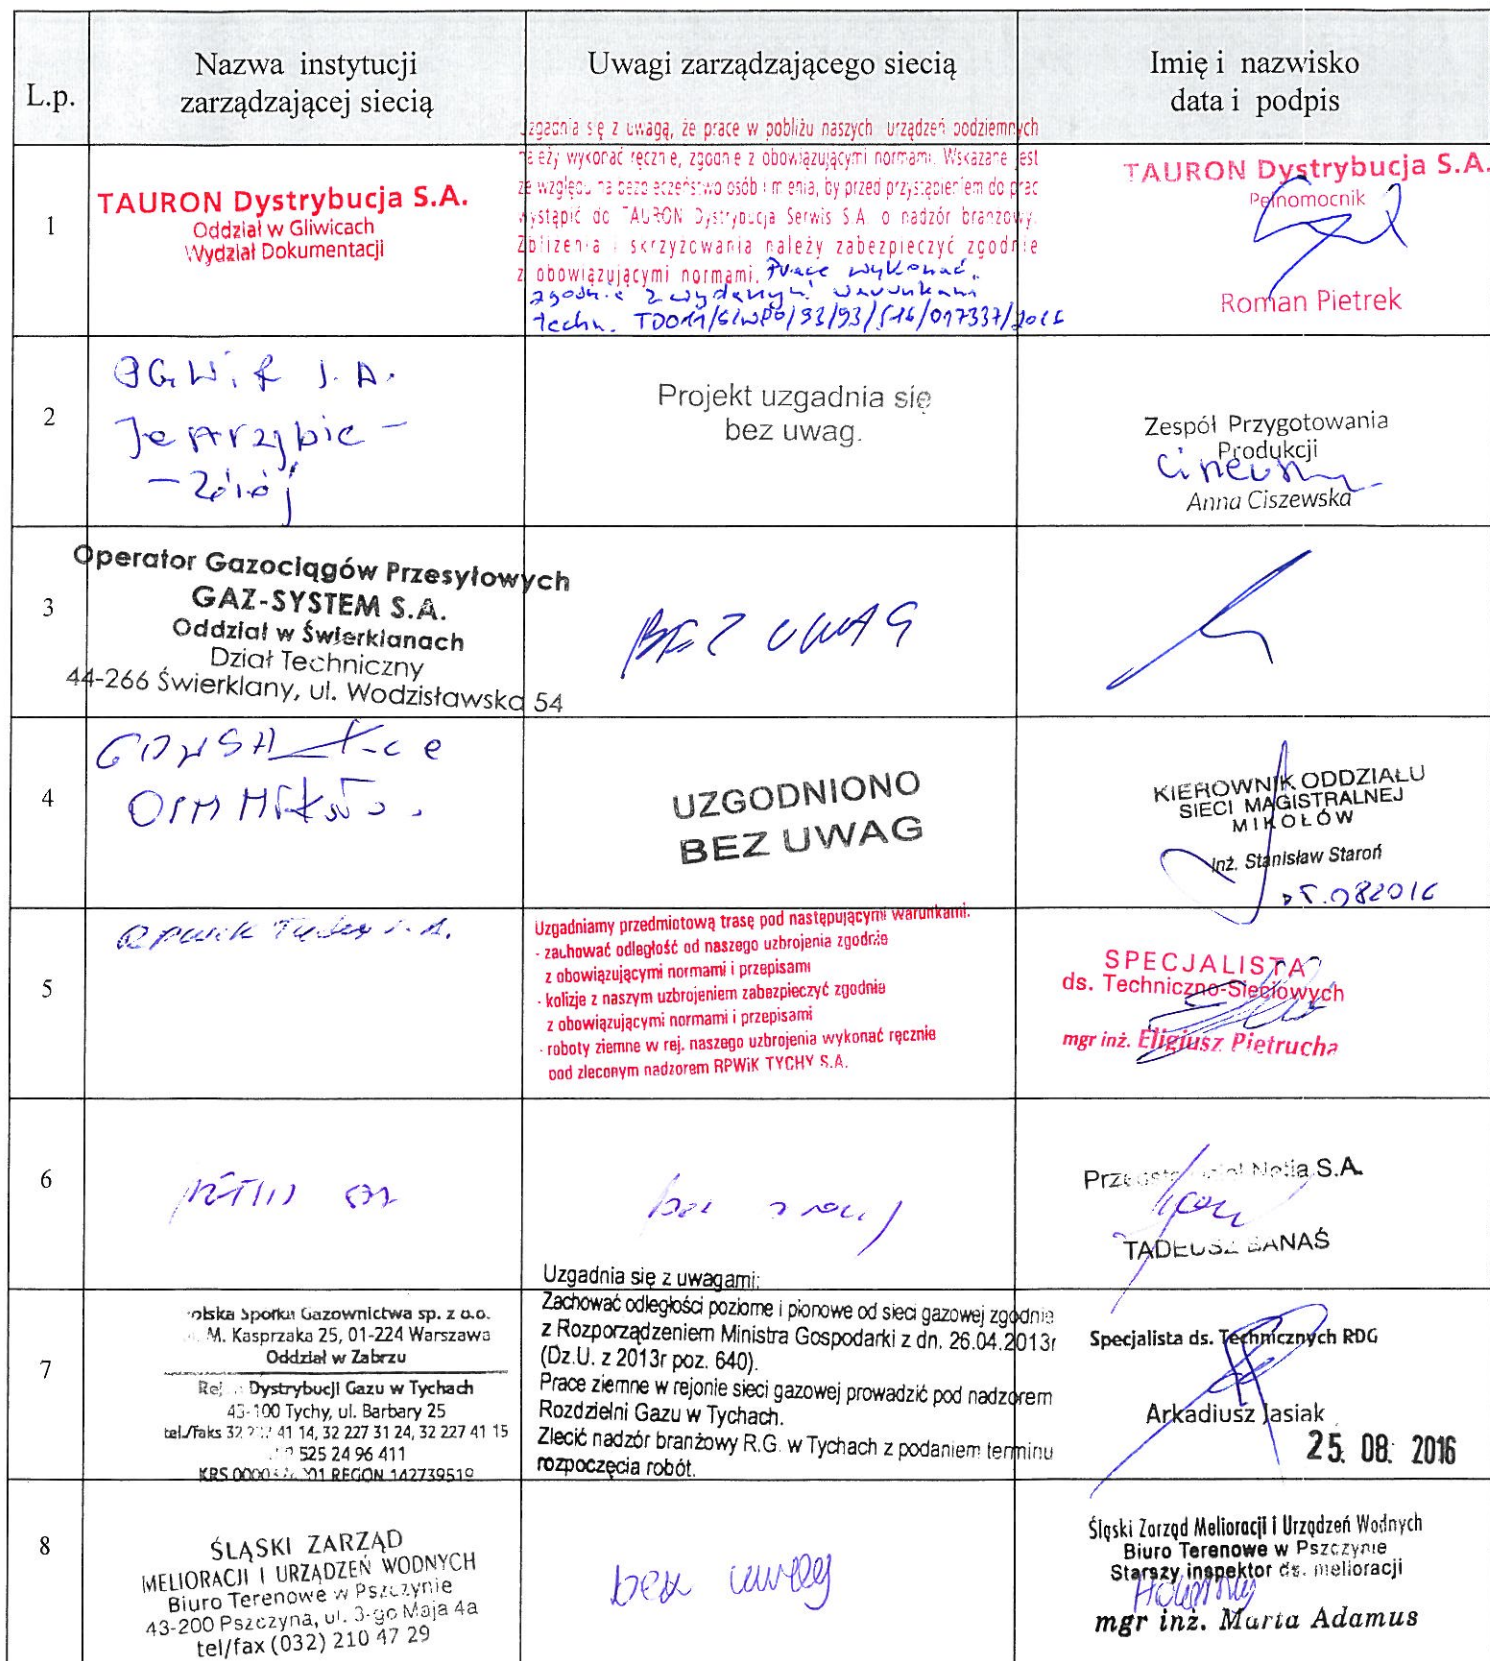 L.p.
Nazwa instytucji
zarządzającej siecią
Uwagi zarządzającego siecią
Imię i nazwisko
data i podpis
1
TAURON Dystrybucja S.A.
Oddział w Gliwicach
Wydział Dokumentacji
Uzgadnia się z uwagą, że prace w pobliżu naszych urządzeń podziemnych
należy wykonać ręcznie, zgodnie z obowiązującymi normami. Wskazane jest
ze względu na bezpieczeństwo osób i mienia, by przed przystąpieniem do prac
wystąpić do TAURON Dystrybucja Serwis S.A. o nadzór branżowy.
Zbliżenia i skrzyżowania należy zabezpieczyć zgodnie
z obowiązującymi normami. Prace wykonać
zgodnie z wydanymi warunkami
techn.
TAURON Dystrybucja S.A.
Pełnomocnik
Roman Pietrek
2
PGWiR S.A.
Jastrzębie -
- Zdrój
Projekt uzgadnia się
bez uwag.
Zespół Przygotowania
Produkcji
Anna Ciszewska
3
Operator Gazociągów Przesyłowych
GAZ-SYSTEM S.A.
Oddział w Świerklanach
Dział Techniczny
44-266 Świerklany, ul. Wodzisławska 54
BEZ UWAG
4
UZGODNIONO
BEZ UWAG
KIEROWNIK ODDZIAŁU
SIECI MAGISTRALNEJ
MIKOŁÓW
inż. Stanisław Staroń
5
RPWiK Tychy S.A.
Uzgadniamy przedmiotową trasę pod następującymi warunkami:
- zachować odległość od naszego uzbrojenia zgodnie
z obowiązującymi normami i przepisami
- kolizje z naszym uzbrojeniem zabezpieczyć zgodnie
z obowiązującymi normami i przepisami
- roboty ziemne w rej. naszego uzbrojenia wykonać ręcznie
pod zleconym nadzorem RPWiK TYCHY S.A.
SPECJALISTA
ds. Techniczno-Sieciowych
mgr inż. Eligiusz Pietrucha
6
bez uwag
Przedstawiciel Netia S.A.
TADEUSZ BANAŚ
7
Polska Spółka Gazownictwa sp. z o.o.
M. Kasprzaka 25, 01-224 Warszawa
Oddział w Zabrzu
Rejon Dystrybucji Gazu w Tychach
43-100 Tychy, ul. Barbary 25
tel./faks 32 41 14, 32 227 31 24, 32 227 41 15
525 24 96 411
KRS REGON 142739519
Uzgadnia się z uwagami:
Zachować odległości poziome i pionowe od sieci gazowej zgodnie
z Rozporządzeniem Ministra Gospodarki z dn. 26.04.2013r
(Dz.U. z 2013r poz. 640).
Prace ziemne w rejonie sieci gazowej prowadzić pod nadzorem
Rozdzielni Gazu w Tychach.
Zlecić nadzór branżowy R.G. w Tychach z podaniem terminu
rozpoczęcia robót.
Specjalista ds. Technicznych RDG
Arkadiusz Jasiak
25. 08. 2016
8
ŚLĄSKI ZARZĄD
MELIORACJI I URZĄDZEŃ WODNYCH
Biuro Terenowe w Pszczynie
43-200 Pszczyna, ul. 3-go Maja 4a
tel/fax (032) 210 47 29
bez uwag
Śląski Zarząd Melioracji i Urządzeń Wodnych
Biuro Terenowe w Pszczynie
Starszy inspektor ds. melioracji
mgr inż. Marta Adamus